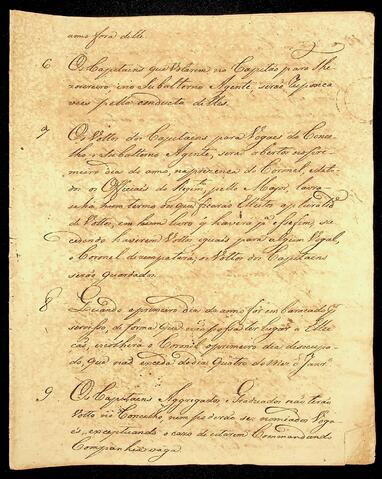 anno fora delle.
6 Os Capitaens que Votarem no Capitão para The
zoureiro, e no Subalterno Agente, serão Responça
veis pella conducta delles.
7 Os Vottos dos Capitaens para Vogaes do Conce
lho e Subalterno Agente, serão abertos no pri
meiro dia do anno, na prezença do Coronel, e
os Officiaes do Regim.to pello Major, lavra
num termo dos que ficarão Eleitos a pluralid.e
de Vottos, em hum livro q haverá p.a esse fim, su
cedendo haverem Vottos iguaes para algum Vogal,
o Coronel dezempatará; os Vottos dos Capitaens
serão guardados.
8 Quando o primeiro dia do anno for embaraçado p.r
serviço, de forma que não possa ter lugar a Elei
ção, escolherá o Coronel o primeiro dia dezocupa
do, que não exceda do dia quatro do Mez de Janr.o
9 Os Capitaens Aggregados, e Graduados não terão
Votto no Concelho, nem poderão ser nomiados Voga
es, exceptuando o cazo de estarem Commandando
Companhia vaga.